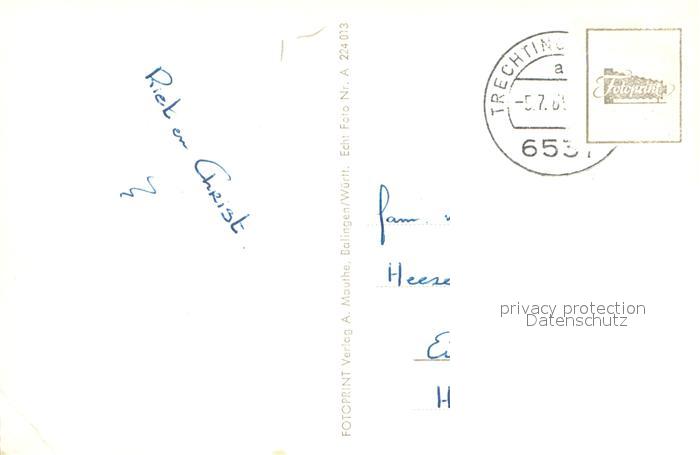 Riek en Christ.
FOTOPRINT Verlag A. Mauthe, Balingen/Württ. Echt Foto Nr. A 224 013
TRECHTING
a
-5.7.6
653
Fotoprint
fam.
Heeze
Ei
H
privacy protection
Datenschutz